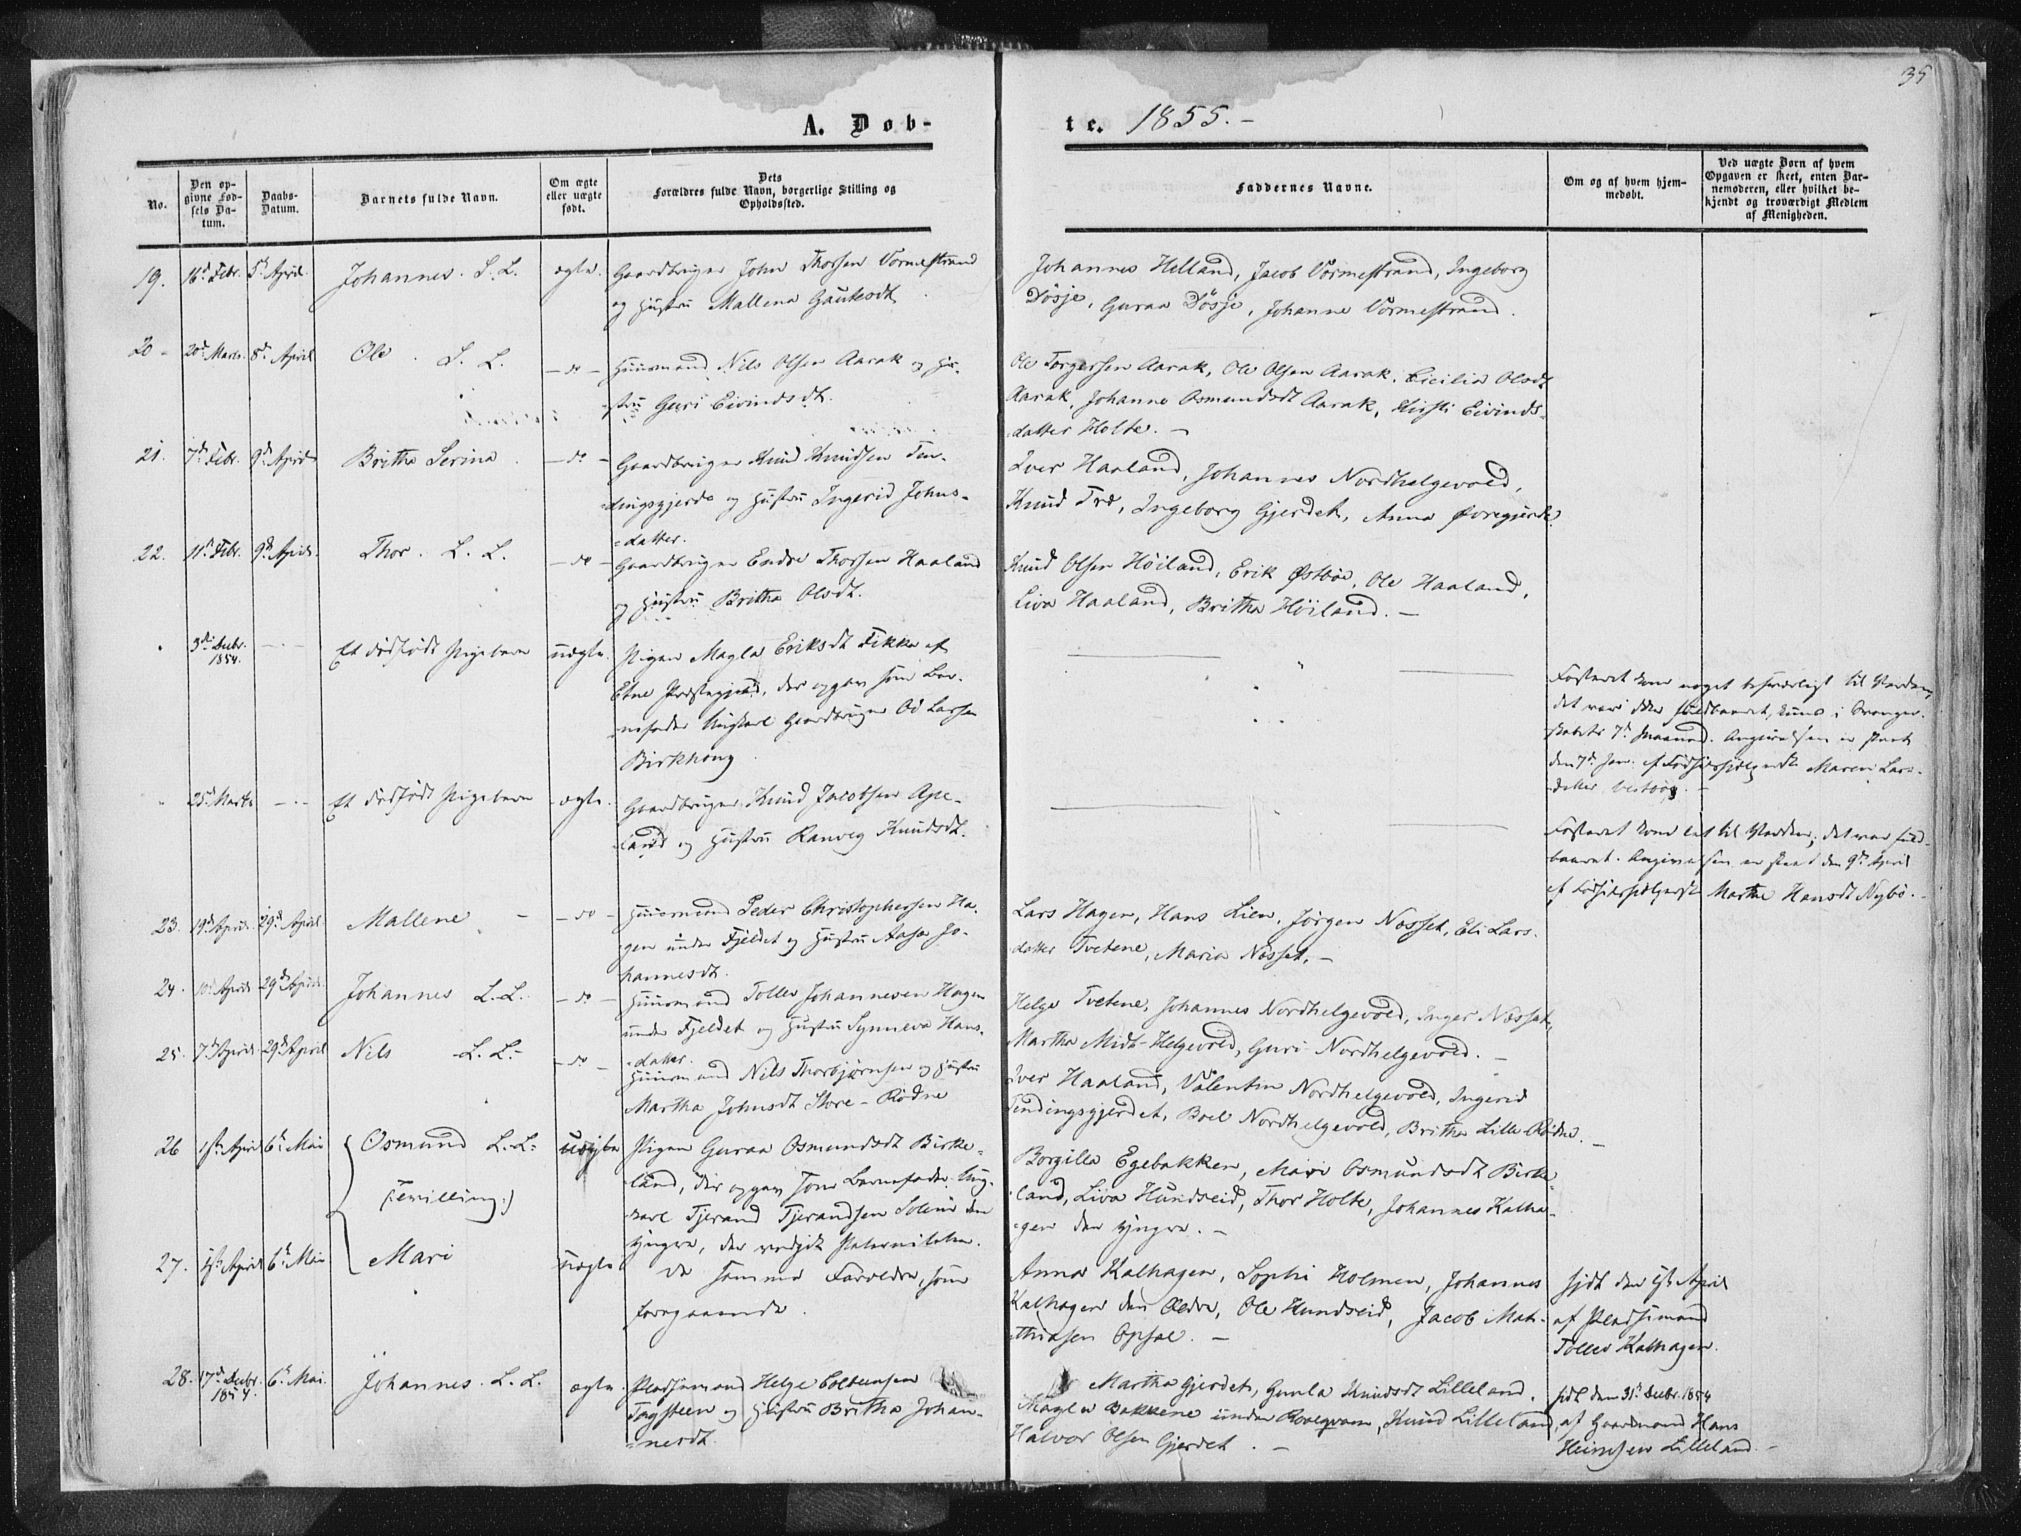 35
A. Dob-
te. 1855.-
No.
Den op-
givne Fød-
sels Da-
tum.
Daabs-
Datum.
Barnets fulde Navn.
Om ægte
eller uægte
født.
Dets
Forældres fulde Navn, borgerlige Stilling og
Opholdssted.
Faddernes Navne.
Om og af hvem hjem-
medøbt.
Ved uægte Børn af hvem
Opgaven er skeet, enten Bar-
nemoderen, eller hvilket be-
kjendt og troværdigt Medlem
af Menigheden.
19. 16d Febr. 5d April. Johannes. L. L. ægte. Gaardbruger John Thorsen Vormestrand
og Hustru Mallena Gautesdt.
Johannes Helland, Jacob Vormestrand, Ingeborg
Døsje, Guraa Døsje, Johanne Vormestrand.
20 - 20d Marts. 8d April Ole. L. L. - do - Huusmand Nils Olsen Aarak og Hu-
stru Guri Eivindsdt.
Ole Torgersen Aarak, Ole Olsen Aarak, Cicilia Olsdt
Aarak, Johanne Osmundsdt Aarak, Kirsti Eivinds-
datter Holte. -
21. 7d Febr. 9d April Britha Serina - do - Gaardbruger Knud Knudsen Ten-
dingsgjerde og Hustru Ingerid Johns-
datter.
Iver Haaland, Johannes Nordhelgevold,
Knud Træ, Ingeborg Gjerdet, Anna Øvregjerde
22. 11d Febr. 9d April. Thor. L. L. - do - Gaardbruger Endre Thorsen Haaland
og Hustru Britha Olsdt.
Knud Olsen Høiland, Erik Østbøe, Ole Haaland,
Liva Haaland, Britha Høiland. -
3d Decbr.
1854. Et dødfødt Pigebarn uægte. Pigen Magla Eriksdt Fikka af
Etne Præstegjeld, der opgav som Bar-
nefader Ungkarl Gaardbruger Od Larsen
Birkhoug
Fosteret kom noget besværligt til Verden,
det var ikke fuldbaaret, kuns i Svanger-
skabets 7d Maaned. Angivelsen er skeet
den 7d Jan. af Fødselshjelpersk Maren Lars-
datter
25d Marts Et dødfødt Pigebarn ægte. Gaardbruger Knud Jacobsen Ape-
land og Hustru Ranveg Knudsdt.
Fosteret kom let til Verden; det var fuld-
baaret. Angivelsen er skeet den 9d April
af Fødselshjelpersk Martha Hansdt Nybø. -
23. 19d April. 29d April Mallene - - do - Huusmand Peder Christophersen Ha-
gen under Fjeldet og Hustru Aasa Jo-
hannesdt.
Lars Hagen, Hans Lien, Jørgen Næsset, Eli Lars-
datter Tvetene, Maria Næsset. -
24. 10d April 29d April. Johannes L. L. - do - Huusmand Tollev Johannesen Hagen
under Fjeldet og Hustru Synneva Hans-
datter.
Helge Tvetene, Johannes Nordhelgevold, Inger Næsset,
Martha Midt-Helgevold, Guri Nordhelgevold. -
25. 7d April 29d April Nils L. L. - do - Huusmand Nils Thorbjørnsen og Hustru
Martha Johnsdt Store-Rødne
Iver Haaland, Valentin Nordhelgevold, Ingerid
Tendingsgjerdet, Boel Nordhelgevold, Britha Lille Rødne. -
26 April 6d Mai Osmund L. L. uægte Pigen Guraa Osmundsdt Birke-
(Tvilling.)
land, der opgav som Barnefader Ung-
karl Tjerand Tjerandsen Solem den
yngre, der vedgik Paterniteten.
Borgilla Egebakken, Mari Osmundsdt Birke-
land, Liva Hundseid, Thor Holte, Johannes Kalha-
gen den yngre. -
27. April 6d Mai Mari uægte De samme Forældre, som
foregaaende.
Anna Kalhagen, Sophi Holmen, Johannes
Kalhagen den Ældre, Ole Hundseid, Jacob Mat-
thiasen Opsal. -
hjdt den April
af Pladsmand
Tollev Kalhagen.
28. 17d Decbr.
1854. 6d Mai. Johannes. L. L. ægte. Pladsmand Helge Colbeensen
Tagsteen og Hustru Britha Johan-
nesdt.
Martha Gjerdet, Gunla Knudsdt Lilleland,
Magla Bakkene under Roalqvam, Knud Lilleland,
Halvor Olsen Gjerdet. -
hjdt den 31d Decbr. 1854
af Gaardmand Hans
Lilleland. -